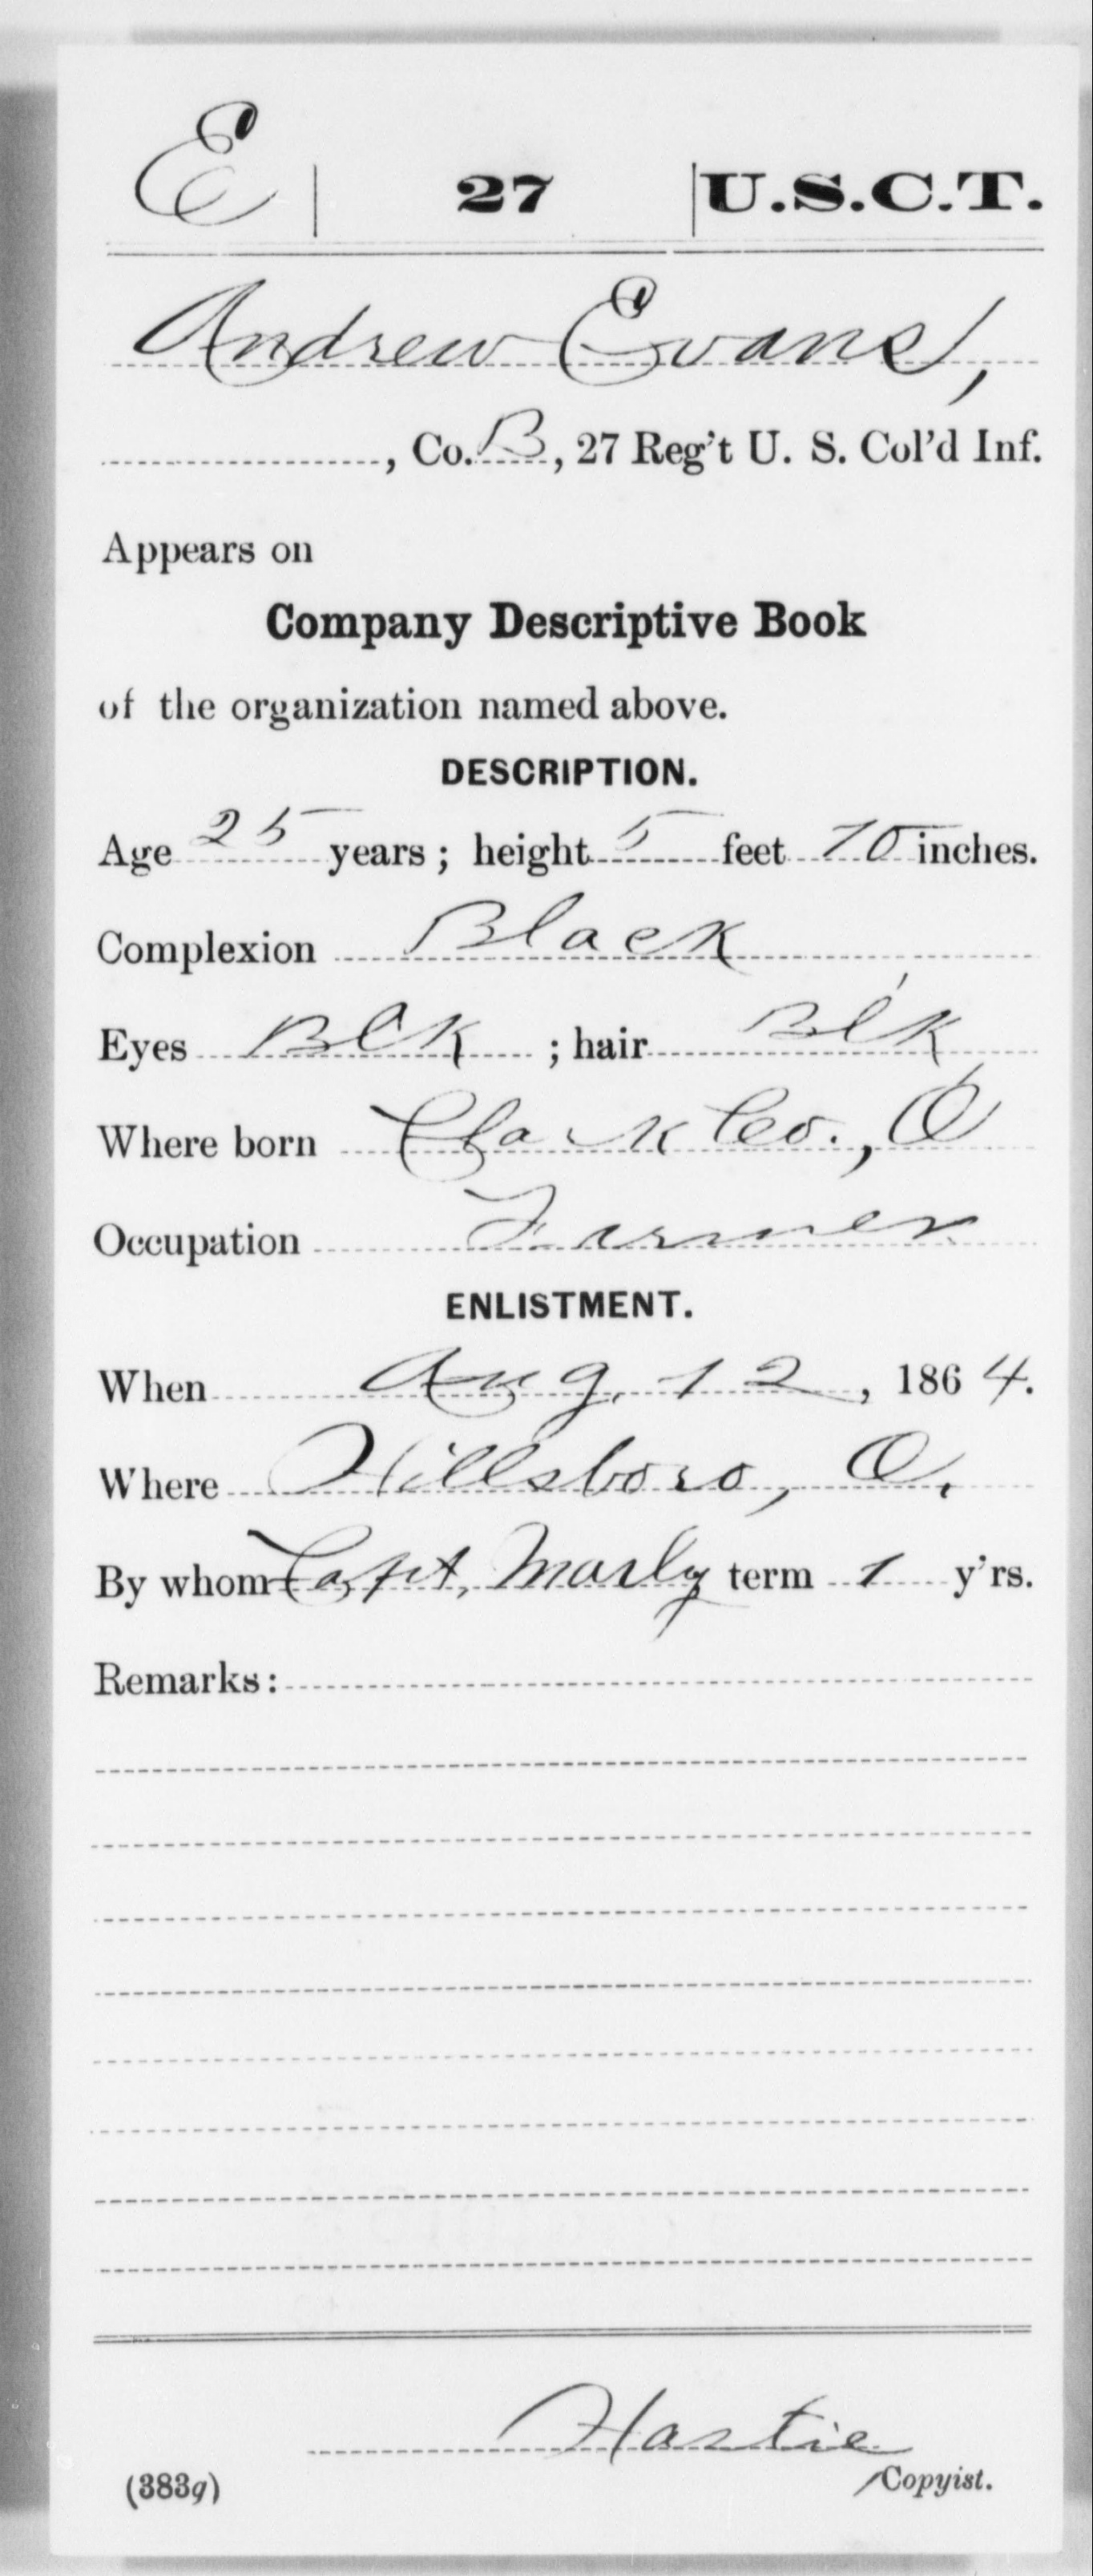 E | 27 | U.S.C.T.
Andrew Evans,
, Co. B, 27 Reg't U. S. Col'd Inf.
Appears on
Company Descriptive Book
of the organization named above.
DESCRIPTION.
Age 25 years; height 5 feet 10 inches.
Complexion Black
Eyes Blk ; hair Blk
Where born Clark Co., O
Occupation Farmer
ENLISTMENT.
When Aug. 12, 1864.
Where Hillsboro, O.
By whom Capt. Marly term 1 y'rs.
Remarks:
Hastie
(383g) Copyist.